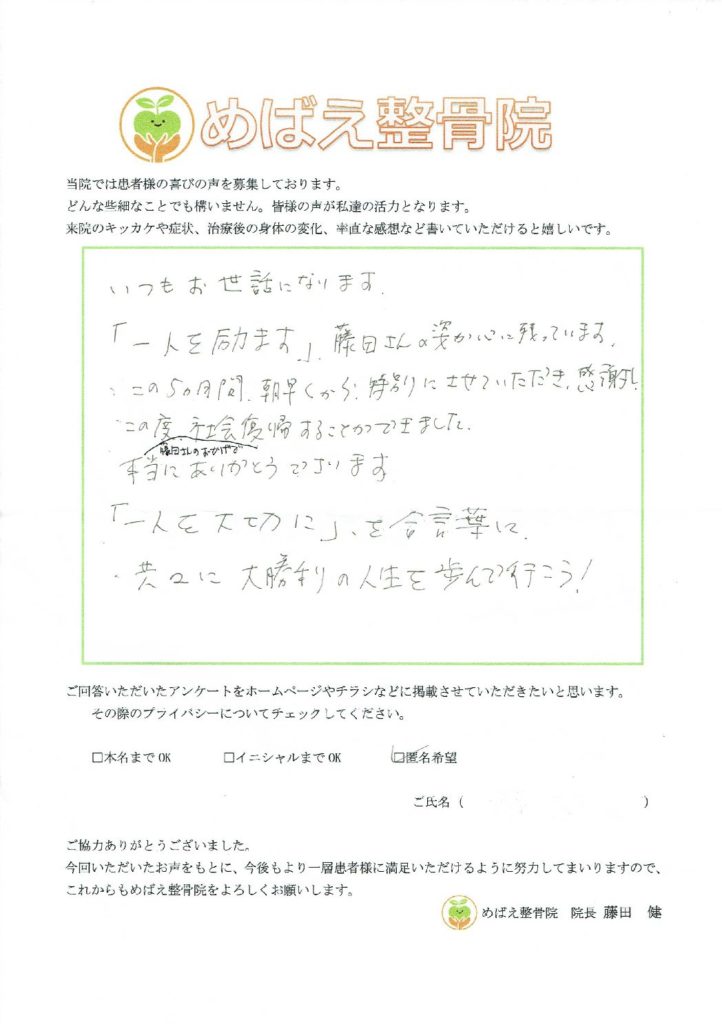 めばえ整骨院
当院では患者様の喜びの声を募集しております。
どんな些細なことでも構いません。皆様の声が私達の活力となります。
来院のキッカケや症状、治療後の身体の変化、率直な感想など書いていただけると嬉しいです。
いつもお世話になります.
「一人を励ます」、藤田さんの姿が心に残っています.
・この5ヶ月間、朝早くから、特別にさせていただき、感謝!
この度、社会復帰することができました.
藤田さんのおかげで
本当にありがとうございます
「一人を大切に」、を合言葉に、
・共々に大勝利の人生を歩んで行こう!
ご回答いただいたアンケートをホームページやチラシなどに掲載させていただきたいと思います。
その際のプライバシーについてチェックしてください。
□本名までOK □イニシャルまでOK ☑匿名希望
ご氏名( )
ご協力ありがとうございました。
今回いただいたお声をもとに、今後もより一層患者様に満足いただけるように努力してまいりますので、
これからもめばえ整骨院をよろしくお願いします。
めばえ整骨院 院長 藤田 健